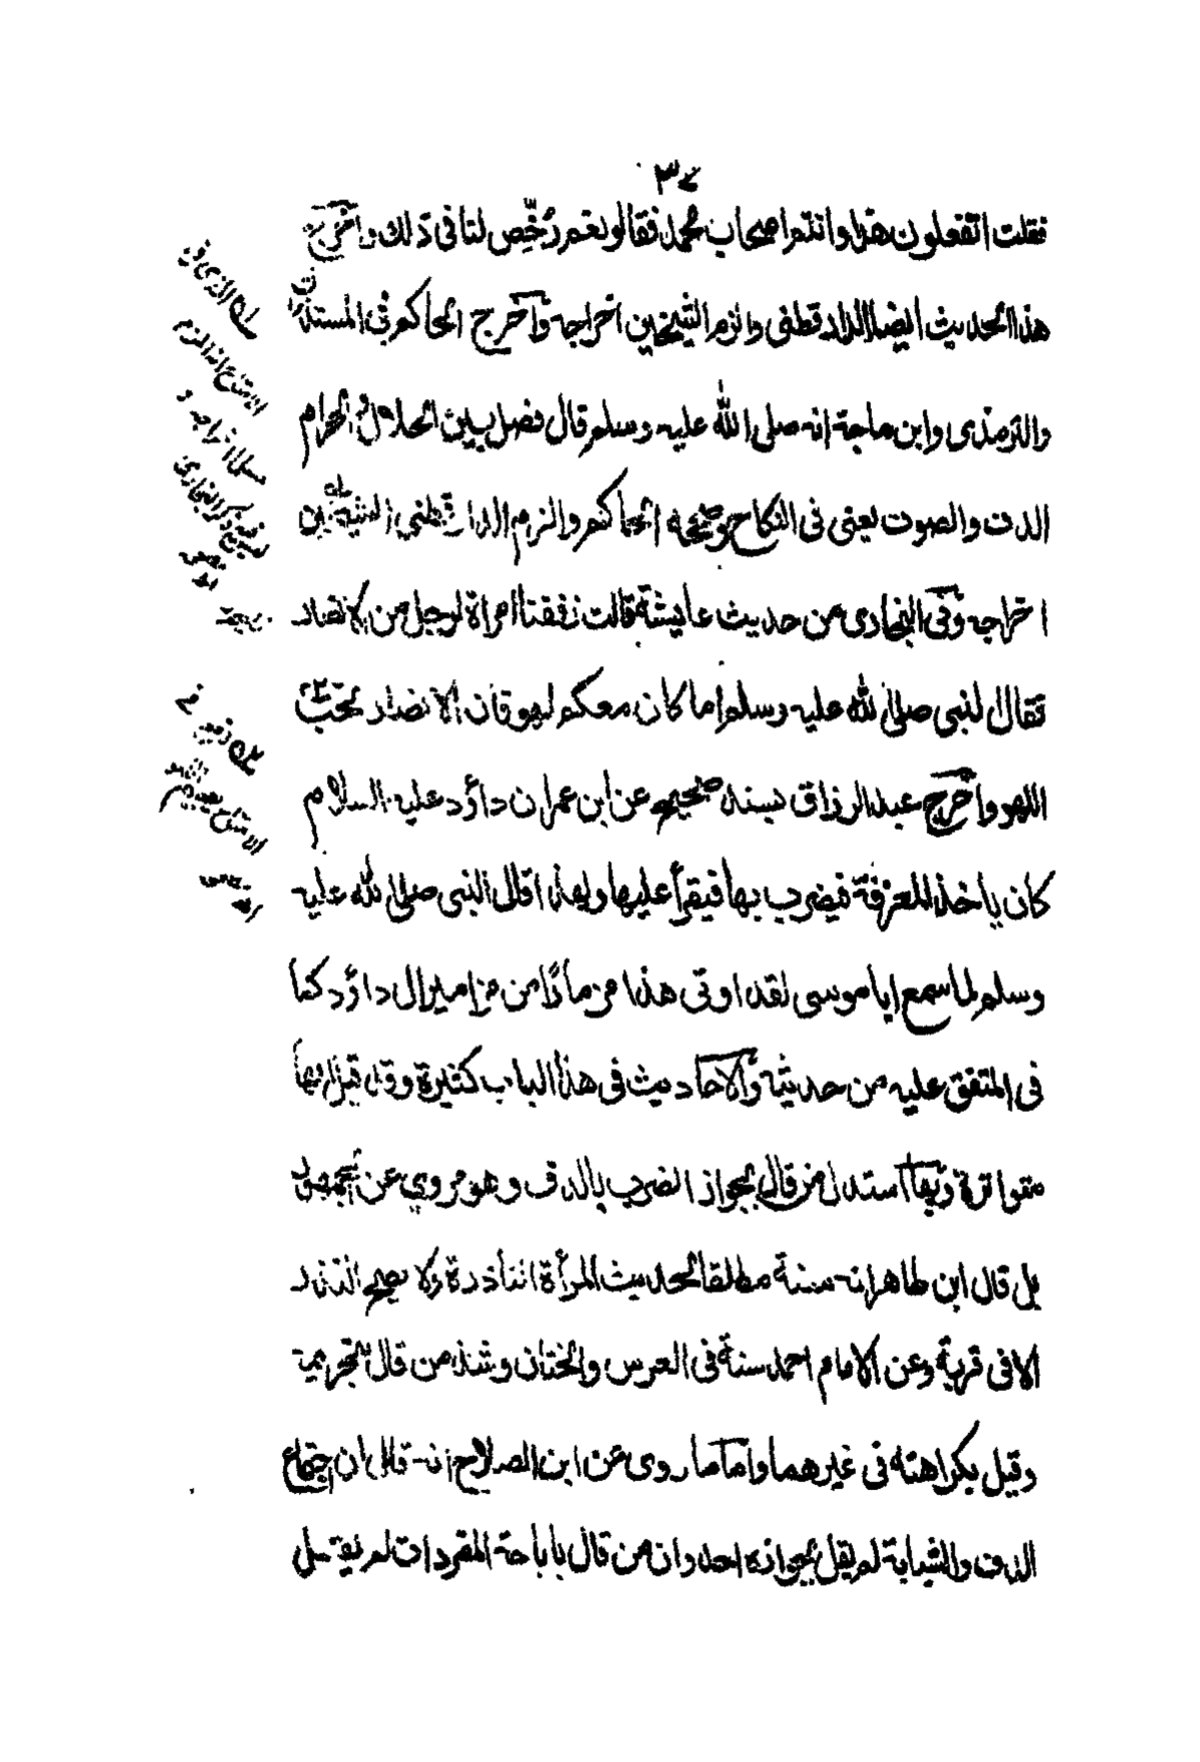 ٣٧
فقلت اتفعلون هذا وانتم اصحاب محمد فقالو نعم رُخِّص لنا فى ذلك واخرج
هذا الحديث ايضا الدار قطنى والزم الشيخين اخراجه وآخرج الحاكم فى المستدرك
والترمذى وابن ماجة انه صلى الله عليه وسلم قال فصل بين الحلال والحرام
الدف والصوت يعنى فى النكاح وصححه الحاكم والزم الدار قطنى الشيخين
اخراجه وفى البخارى من حديث عايشة قالت زففنا امراة لرجل من الانصار
فقال النبى صلى الله عليه وسلم اما كان معكم لهو فان الانصار يحب
اللهو واخرج عبد الرزاق بسند صحيح عن ابن عمر ان داؤد عليه السلام
كان ياخذ المعزفة فيضرب بها فيقرأ عليها ولهذا قال النبى صلى الله عليه
وسلم لما سمع ابا موسى لقد اوتى هذا مزمارًا من مزامير ال داؤد كما
فى المتفق عليه من حديثه والاحاديث فى هذا الباب كثيرة وقد قيل انها
متواترة وبها استدل من قال بجواز الضرب بالدف وهو مروي عن الجمهور
بل قال ابن طاهر انه سنة مطلقا لحديث المرأة الناذرة ولا يصح النذر
الا فى قربة وعن الامام احمد سنة فى العرس والختان وشذ من قال بتحريمه
وقيل بكراهته فى غيرهما واما ما روى عن ابن الصلاح انه قال ان اجتماع
الدف والشبابة لم يقل بجوازه احد وان من قال باباحة المفردات لم يقل
الذى فى
الامتاع انه الزم
مسلما اخراجه و